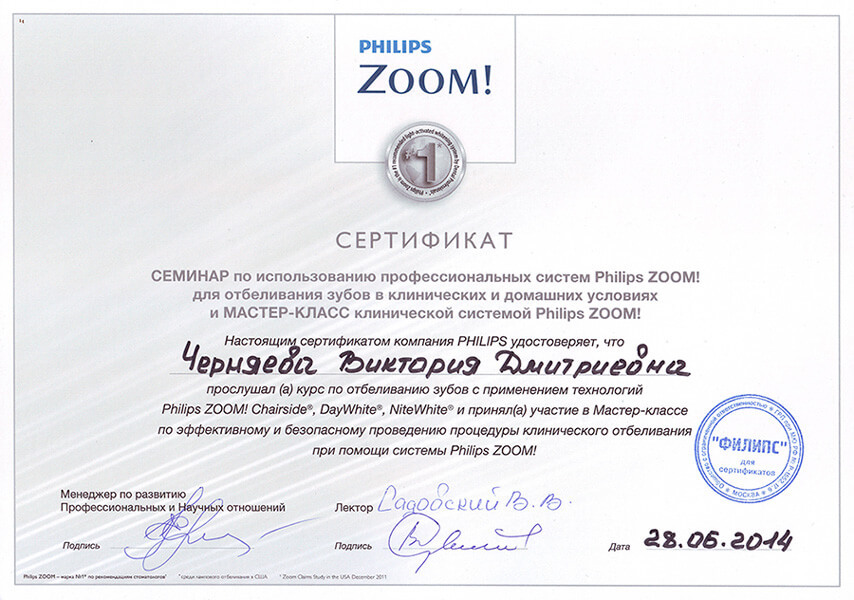 PHILIPS
ZOOM!
1*
СЕРТИФИКАТ
СЕМИНАР по использованию профессиональных систем Philips ZOOM!
для отбеливания зубов в клинических и домашних условиях
и МАСТЕР-КЛАСС клинической системой Philips ZOOM!
Настоящим сертификатом компания PHILIPS удостоверяет, что
Черняева Виктория Дмитриевна
прослушал (а) курс по отбеливанию зубов с применением технологий
Philips ZOOM! Chairside®, DayWhite®, NiteWhite® и принял(а) участие в Мастер-классе
по эффективному и безопасному проведению процедуры клинического отбеливания
при помощи системы Philips ZOOM!
"ФИЛИПС"
для
сертификатов
МОСКВА
Менеджер по развитию
Профессиональных и Научных отношений
Лектор Садовский В. В.
Подпись
Подпись
Дата 28.06.2014
Philips ZOOM – марка №1* по рекомендациям стоматологов* * среди лампового отбеливания в США * Zoom Claims Study in the USA December 2011